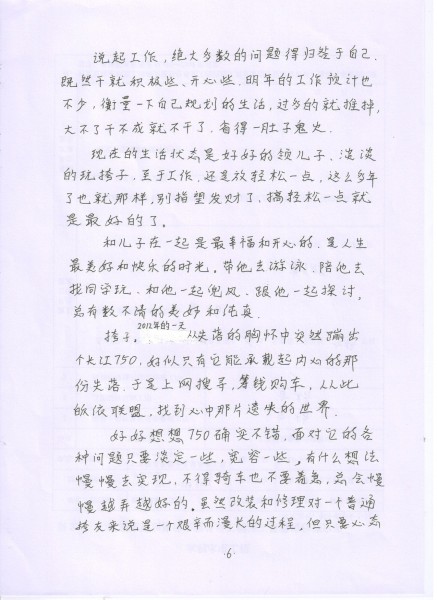 说起工作,绝大多数的问题得归咎于自己.
既然干就积极些、开心些.明年的工作设计也
不少,衡量一下自己规划的生活,过多的就推掉,
大不了干不成就不干了.省得一肚子鬼火.
现在的生活状态是好好的领儿子、淡淡
的玩挎子.至于工作.还是放轻松一点,这么多年
了也就那样,别指望发财了.搞轻松一点就
是最好的了。
和儿子在一起是最幸福和开心的.是人生
最美好和快乐的时光。带他去游泳.陪他去
找同学玩.和他一起兜风.跟他一起探讨,
总有数不清的美妙和纯真.
挎子.2012年的一天从失落的胸怀中突然蹦出
个长江750,好似只有它能承载起内心的那
份失落.于是上网搜寻,筹钱购车,从此
皈依联盟,找到心中那片遗失的世界.
好好想想750确实不错,面对它的各
种问题只要淡定一些,宽容一些,有什么想法
慢慢去实现,不得骑车也不要着急,总会慢
慢越弄越好的.虽然改装和修理对一个普通
挎友来说是一个艰辛而漫长的过程,但只要心态
·6·